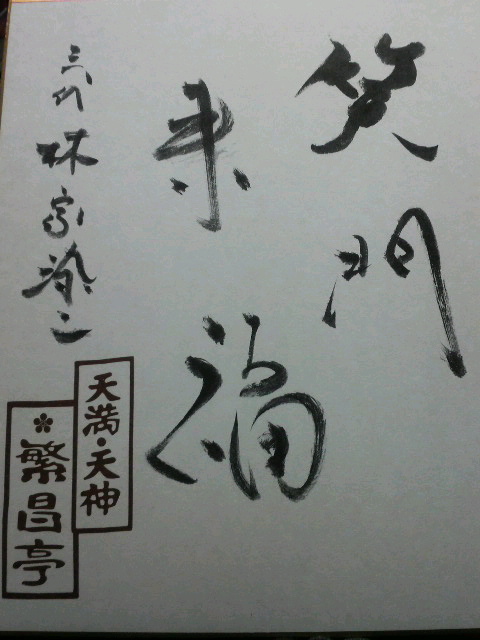 笑門
来福
三代 林家染二
天満・天神
繁昌亭